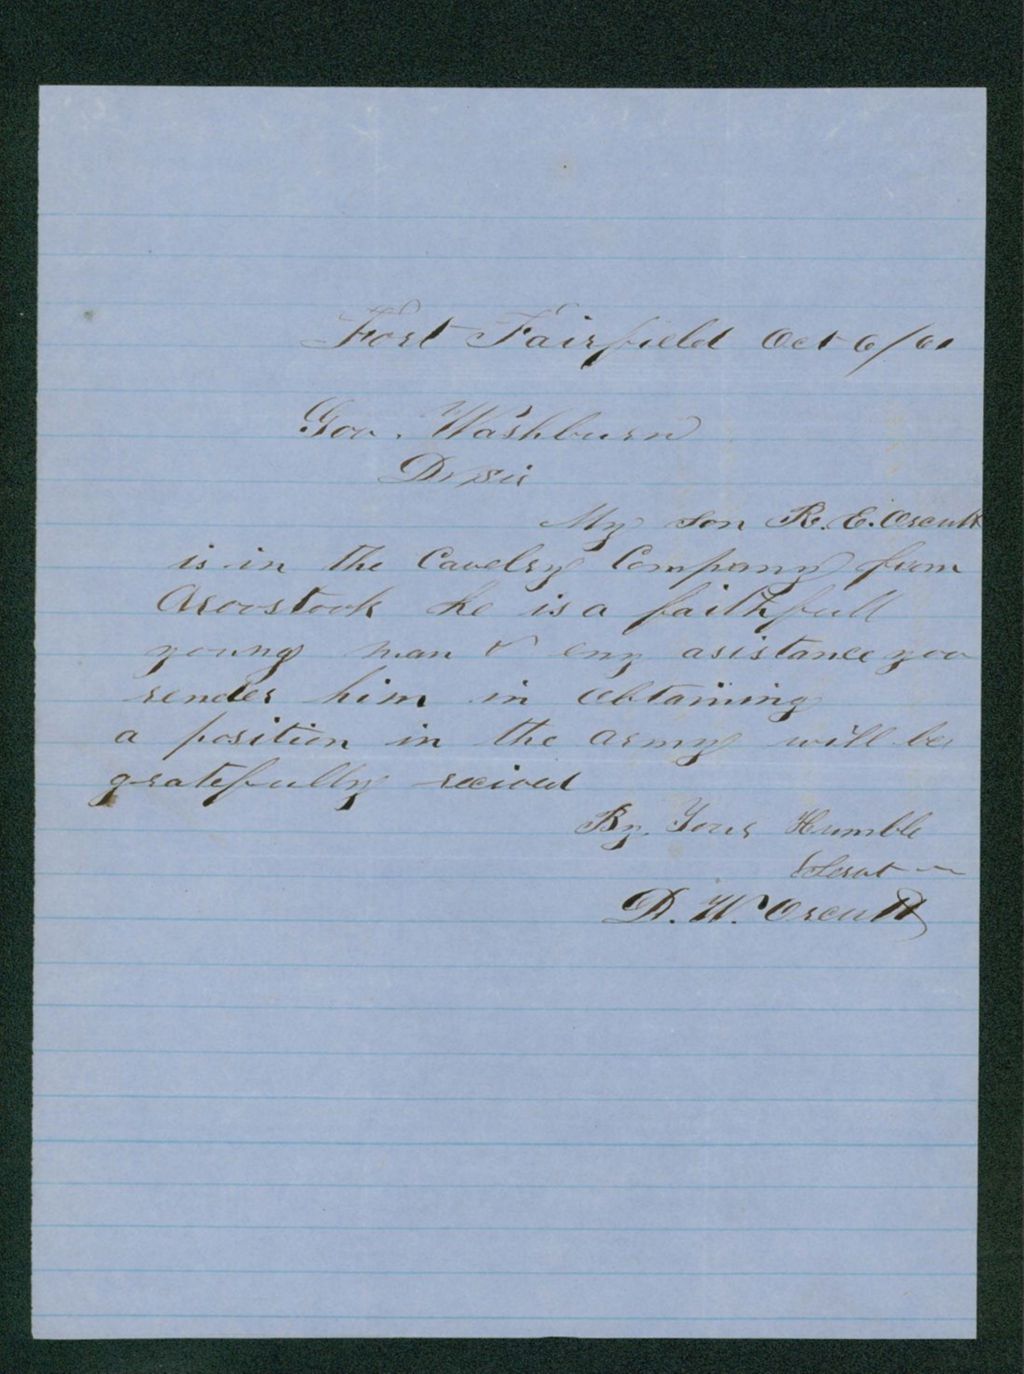 Fort Fairfield Oct 6/61
Gov. Washburn
Dr Sir
My son R. E. Orcutt
is in the Cavelry Company from
Aroostook he is a faithfull
young man & eny asistance you
render him in obtaining
a position in the army will be
gratefully recived
By Your Humble
Servt
D. W. Orcutt